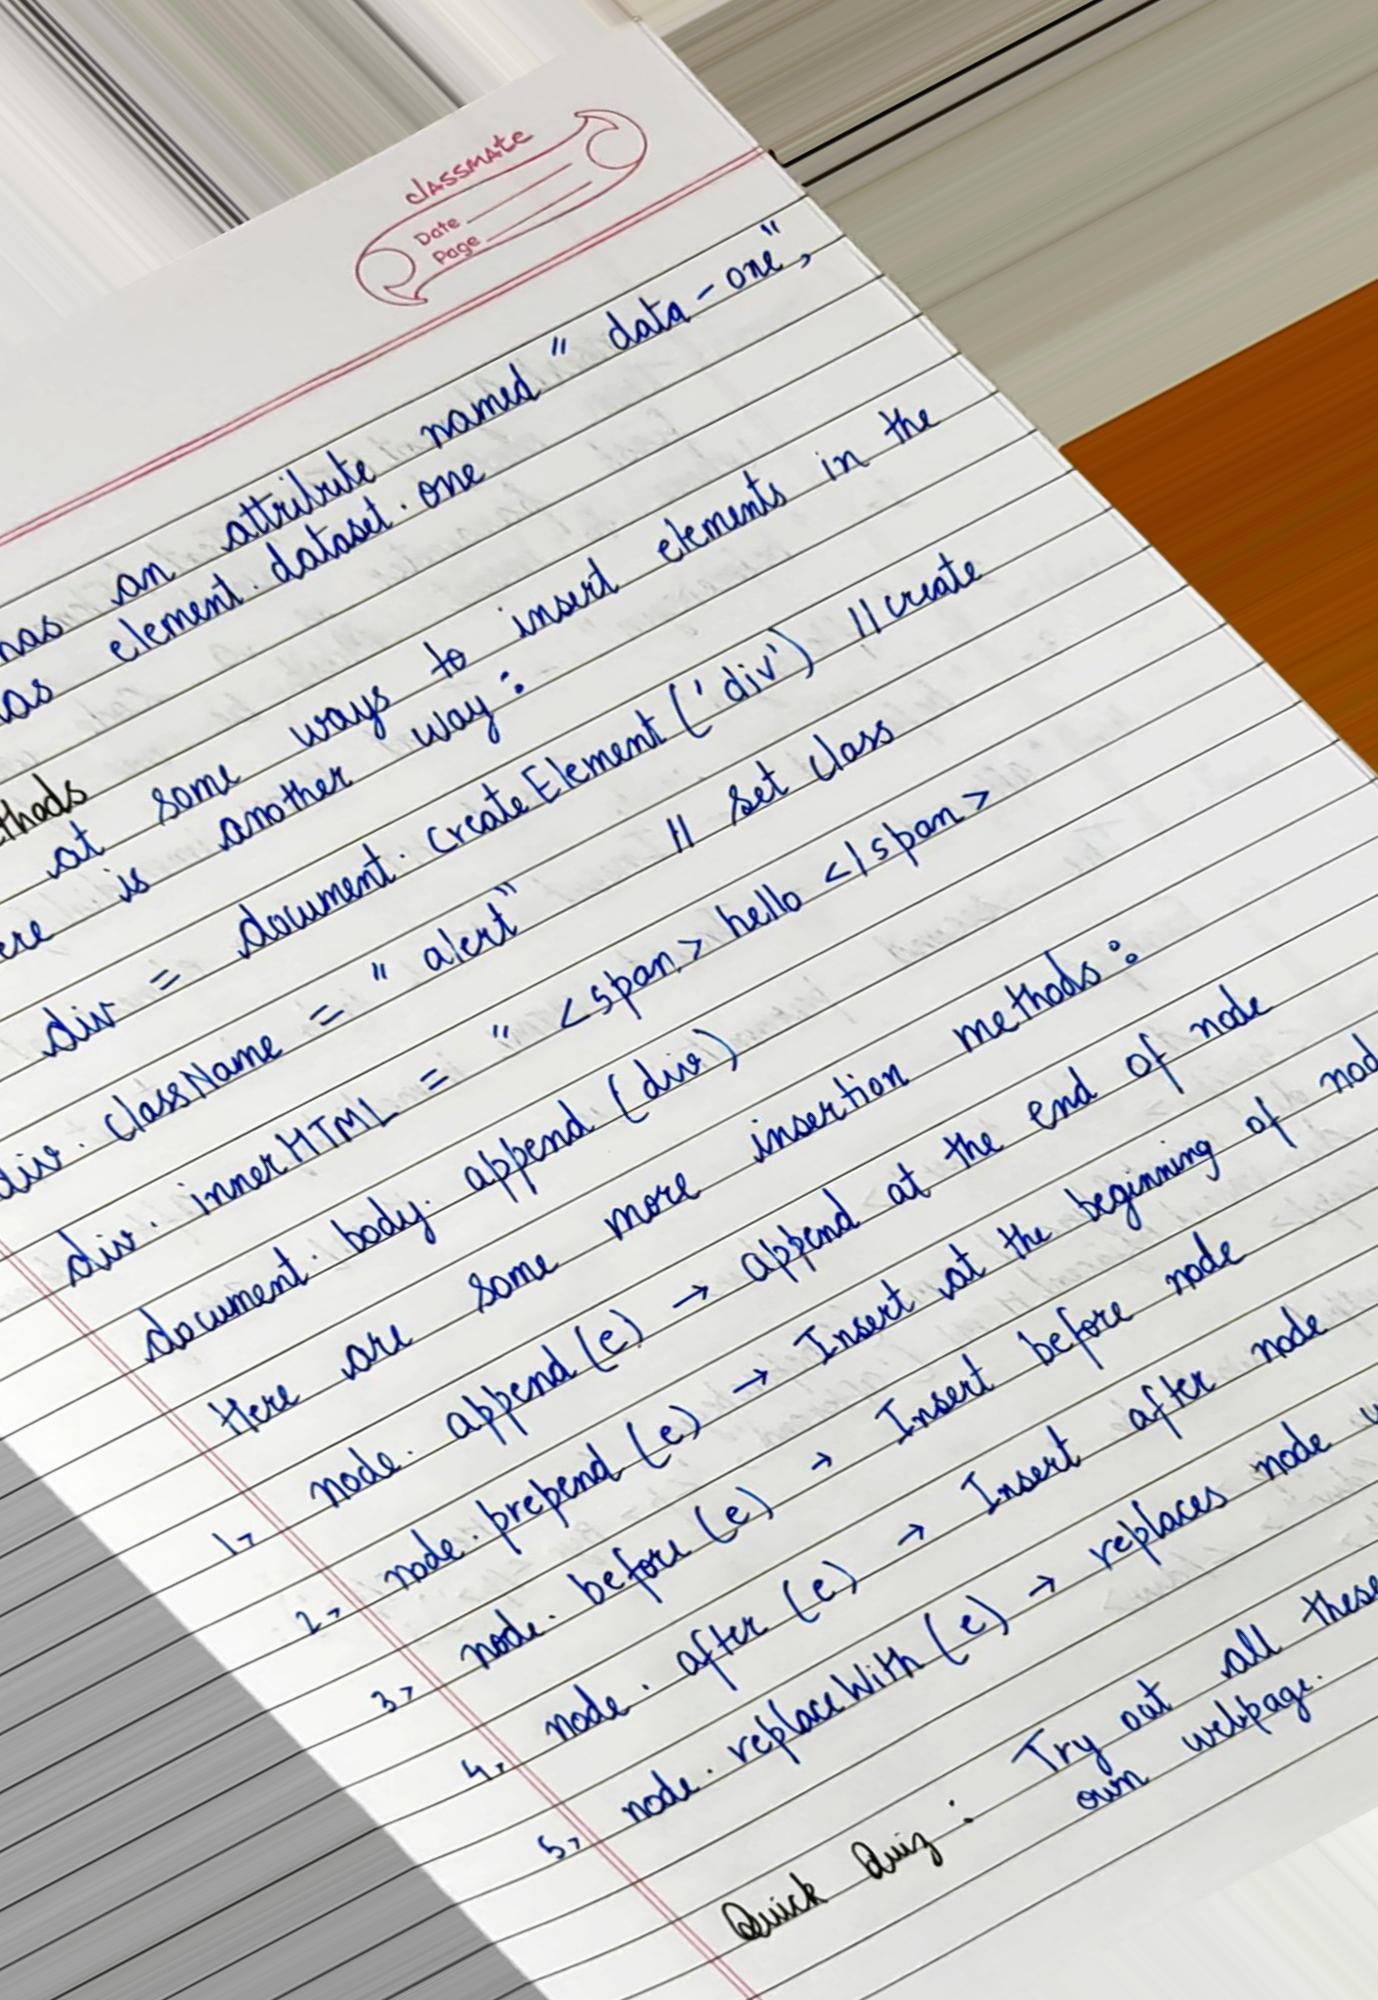 classmate
Date
Page
has an attribute named " data-one",
as element.dataset.one
thods
at some ways to insert elements in the
ere is another way:
div = document.createElement('div') // create
div.className = " alert" // set class
div.innerHTML = " <span> hello </span>
document.body.append(div)
Here are some more insertion methods:
1, node.append(e) → append at the end of node
2, node.prepend(e) → Insert at the beginning of nod
3, node.before(e) → Insert before node
4, node.after(e) → Insert after node
5, node.replaceWith(e) → replaces node
Quick Quiz: Try out all these
own webpage.